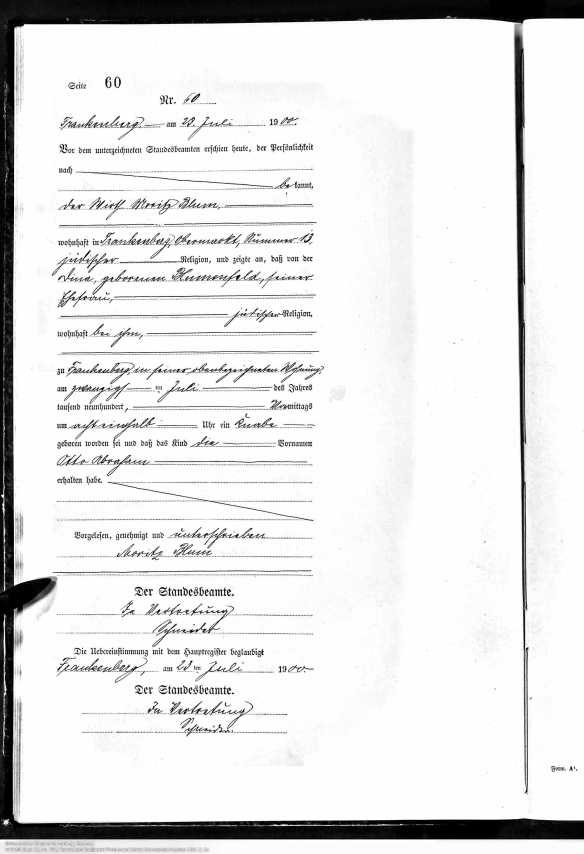 Seite 60
Nr. 60
Frankenberg am 23. Juli 1900.
Vor dem unterzeichneten Standesbeamten erschien heute, der Persönlichkeit
nach
bekannt,
der Wirth Moritz Blum,
wohnhaft in Frankenberg, Obermarkt, Nummer 13,
jüdischer Religion, und zeigte an, daß von der
Dina, geborenen Blumenfeld, seiner
Ehefrau,
jüdischer Religion,
wohnhaft bei ihm,
zu Frankenberg, in seiner obenbezeichneten Wohnung,
am zwanzigsten Juli des Jahres
tausend neunhundert, Vormittags
um acht einhalb Uhr ein Knabe
geboren worden sei und daß das Kind die Vornamen
Otto Abraham
erhalten habe.
Vorgelesen, genehmigt und unterschrieben
Moritz Blum
Der Standesbeamte.
In Vertretung
Schneider
Die Uebereinstimmung mit dem Hauptregister beglaubigt
Frankenberg, am 23 ten Juli 1900
Der Standesbeamte.
In Vertretung
Schneider.
Form. A¹.